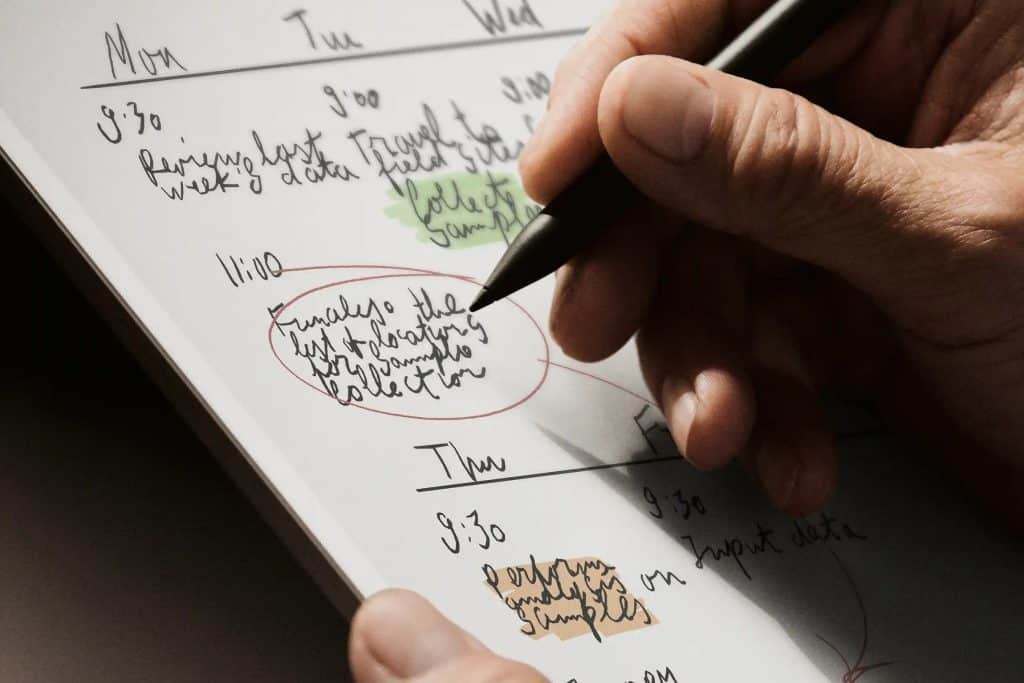 Mon Tue Wed
9:30 9:00 9:00
Review last
week's data
Travel to
field sites
Collect
samples
11:00
the
list of locations
for sample
collection
Thu
9:30
9:30
Perform
analysis on
samples
Input data